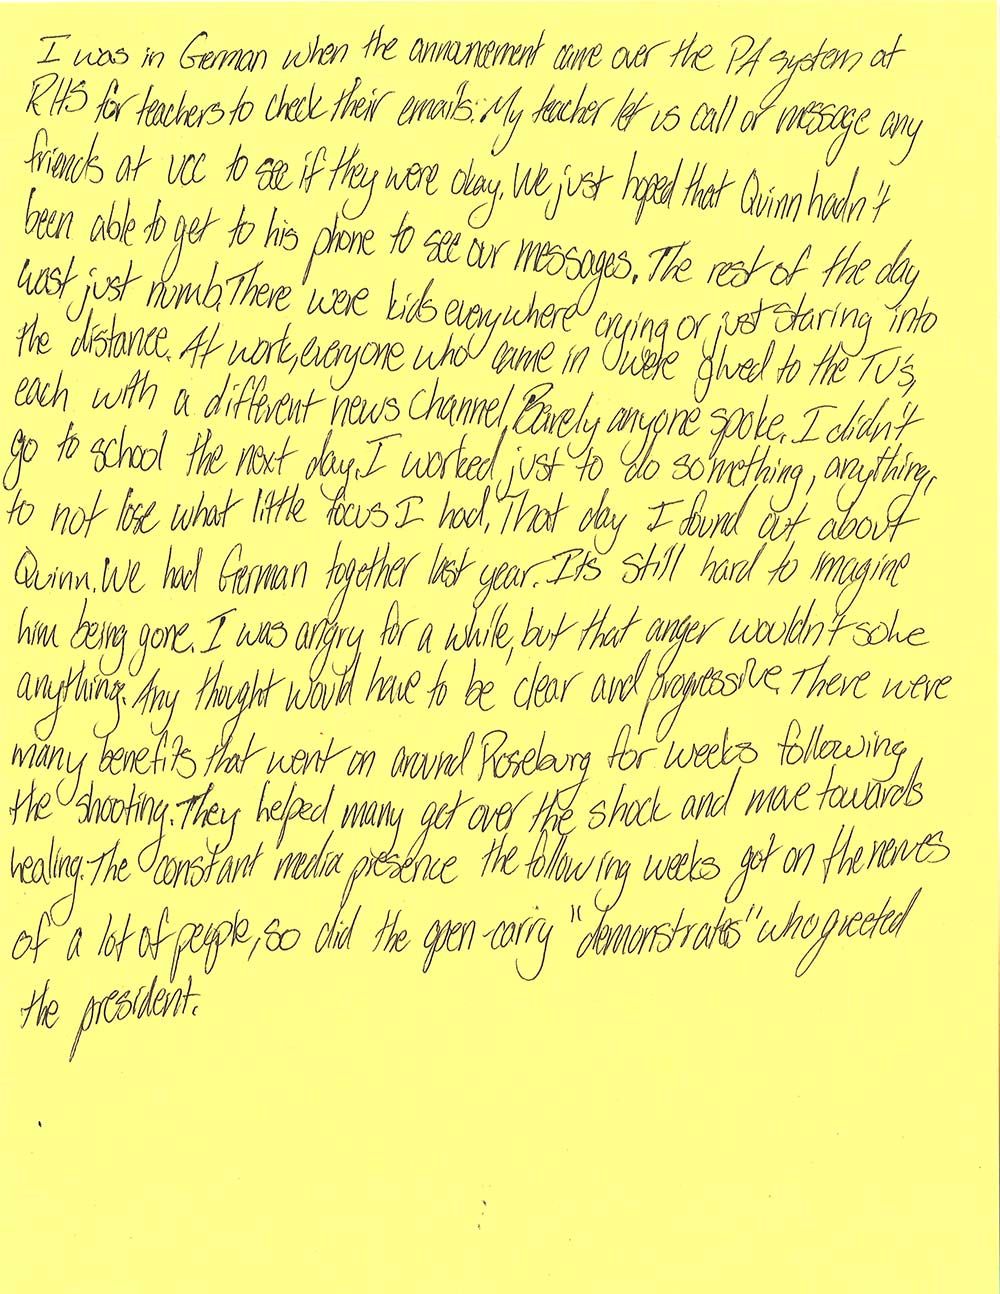 I was in German when the announcement came over the PA system at
RHS for teachers to check their emails. My teacher let us call or message any
friends at UCC to see if they were okay. We just hoped that Quinn hadn't
been able to get to his phone to see our messages. The rest of the day
wast just numb. There were kids everywhere crying or just staring into
the distance. At work, everyone who came in were glued to the TV's,
each with a different news channel. Barely anyone spoke. I didn't
go to school the next day. I worked, just to do something, anything,
to not lose what little focus I had. That day I found out about
Quinn. We had German together last year. Its still hard to imagine
him being gone. I was angry for a while, but that anger wouldn't solve
anything. Any thought would have to be clear and progressive. There were
many benefits that went on around Roseburg for weeks following
the shooting. They helped many get over the shock and move towards
healing. The constant media presence the following weeks got on the nerves
of a lot of people, so did the open-carry "demonstrates" who greeted
the president.